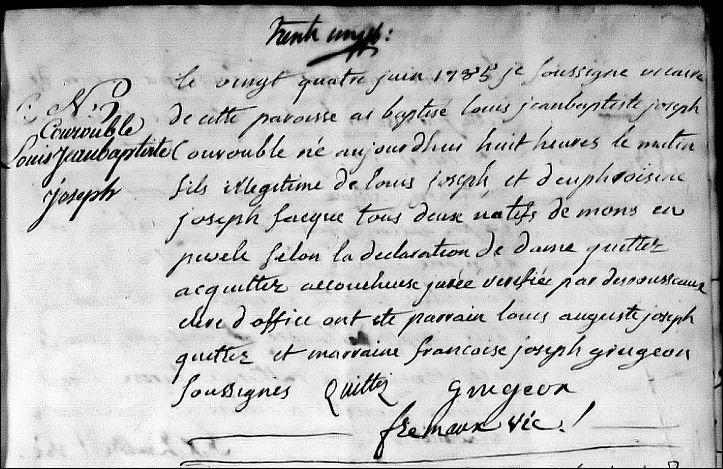 trente un
C. N. P
Courouble
Louis Jeanbaptiste
joseph
le vingt quatre juin 1785 je soussigne vicaire
de cette paroisse ai baptisé louis jeanbaptiste joseph
Courouble né aujourdhui huit heures le matin
fils illegitime de louis joseph et d'euphroisine
joseph facque tous deux natifs de mons en
pevele selon la declaration de dame quittez
acquittez accoucheuse jurée verifiée par desrousseaux
clerc d'office ont ete parrain louis auguste joseph
quittez et marraine francoise joseph grugeon
soussignés Quittez grugeon
fremaux vic.